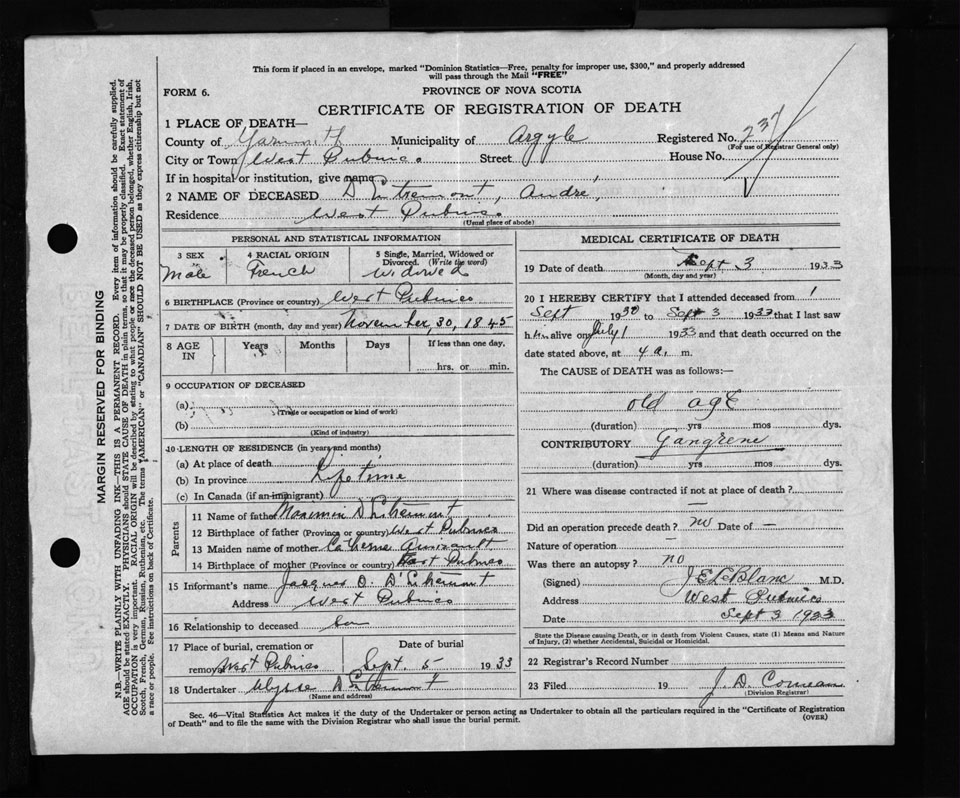 This form if placed in an envelope, marked "Dominion Statistics—Free, penalty for improper use, $300," and properly addressed
will pass through the Mail "FREE"
FORM 6.
PROVINCE OF NOVA SCOTIA
CERTIFICATE OF REGISTRATION OF DEATH
1 PLACE OF DEATH—
County of Yarmouth Municipality of Argyle Registered No. 237
(For use of Registrar General only)
City or Town West Pubnico Street House No.
If in hospital or institution, give name
2 NAME OF DECEASED D'Entremont, André,
Residence West Pubnico
(Usual place of abode)
PERSONAL AND STATISTICAL INFORMATION
3 SEX Male
4 RACIAL ORIGIN French
5 Single, Married, Widowed or
Divorced. (Write the word)
Widowed
6 BIRTHPLACE (Province or country) West Pubnico
7 DATE OF BIRTH (month, day and year) November, 30, 1845
8 AGE IN Years Months Days If less than one day.
hrs. or min.
9 OCCUPATION OF DECEASED
(a)
(Trade or occupation or kind of work)
(b)
(Kind of industry)
10 LENGTH OF RESIDENCE (in years and months)
(a) At place of death
(b) In province Lifetime
(c) In Canada (if an immigrant)
Parents
11 Name of father D'Entremont
12 Birthplace of father (Province or country) West Pubnico
13 Maiden name of mother Catherine
14 Birthplace of mother (Province or country) East Pubnico
15 Informant's name Jacques O. D'Entremont
Address West Pubnico
16 Relationship to deceased Son
17 Place of burial, cremation or
removal West Pubnico
Date of burial
Sept. 5 1933
18 Undertaker Ulysse D'Entremont
(Name and address)
MEDICAL CERTIFICATE OF DEATH
19 Date of death Sept 3 1933
(Month, day and year)
20 I HEREBY CERTIFY that I attended deceased from 1
Sept 1930 to Sept 3 1933 that I last saw
him alive on July 1 1933 and that death occurred on the
date stated above, at 4 a. m.
The CAUSE of DEATH was as follows:—
old age
(duration) yrs mos dys.
CONTRIBUTORY Gangrene
(duration) yrs mos dys.
21 Where was disease contracted if not at place of death?
—
Did an operation precede death? no Date of —
Nature of operation —
Was there an autopsy? no
(Signed) J E LeBlanc M.D.
Address West Pubnico
Date Sept 3 1933
State the Disease causing Death, or in death from Violent Causes, state (1) Means and Nature
of Injury, (2) whether Accidental, Suicidal or Homicidal.
22 Registrar's Record Number
23 Filed 19 J. D. Comeau
(Division Registrar)
Sec. 46—Vital Statistics Act makes it the duty of the Undertaker or person acting as Undertaker to obtain all the particulars required in the "Certificate of Registration
of Death" and to file the same with the Division Registrar who shall issue the burial permit. (OVER)
MARGIN RESERVED FOR BINDING
N.B.—WRITE PLAINLY WITH UNFADING INK—THIS IS A PERMANENT RECORD. Every item of information should be carefully supplied.
AGE should be stated EXACTLY. PHYSICIANS should STATE CAUSE OF DEATH in plain terms, so that it may be properly classified. Exact statement of
OCCUPATION is very important. RACIAL ORIGIN will be described by stating to what people or race the deceased person belonged, whether English, Irish,
Scotch, French, German, Russian, Ruthenian, etc. The terms "AMERICAN" or "CANADIAN" SHOULD NOT BE USED as they express citizenship but not
a race or people. Fee instructions on back of Certificate.